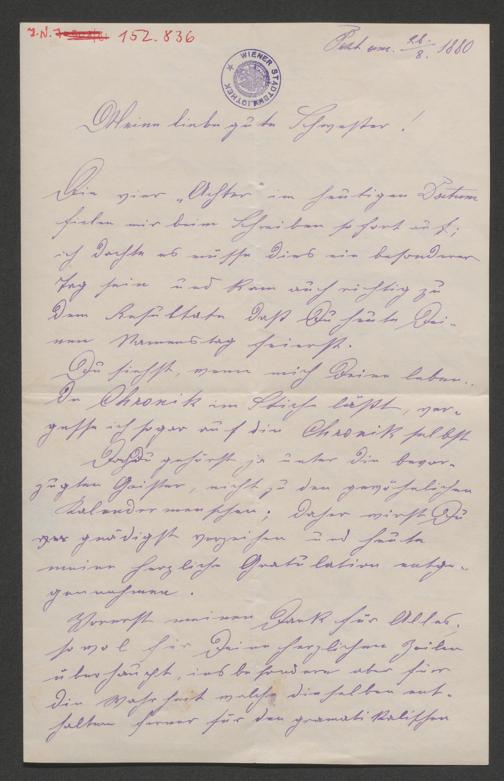 J.N. 152.836
WIENER STADTBIBLIOTHEK
Pest am 28./8. 1880
Meine liebe gute Schwester!
Die vier „Achter im heutigen Datum
fielen mir beim Schreiben sofort auf;
ich dachte es müsse dies ein besonderer
Tag sein und kam auch richtig zu
dem Resultate daß Du heute Dei-
nen Namenstag feierst.
Du siehst, wenn mich Deine leben-
de Chronik im Stiche läßt, ver-
gesse ich sogar auf die Chronik selbst
Doch Du gehörst ja unter die bevor-
zugten Geister, nicht zu den gewöhnlichen
Kalendermenschen; daher wirst Du
gnädigst verzeihen und heute
meine herzliche Gratulation entge-
gennehmen.
Vorerst meinen Dank für Alles,
sowol für Deine herzlichen Zeilen
überhaupt, insbesondere aber für
die Wahrheit welche dieselben ent-
halten ferner für den gramatikalischen